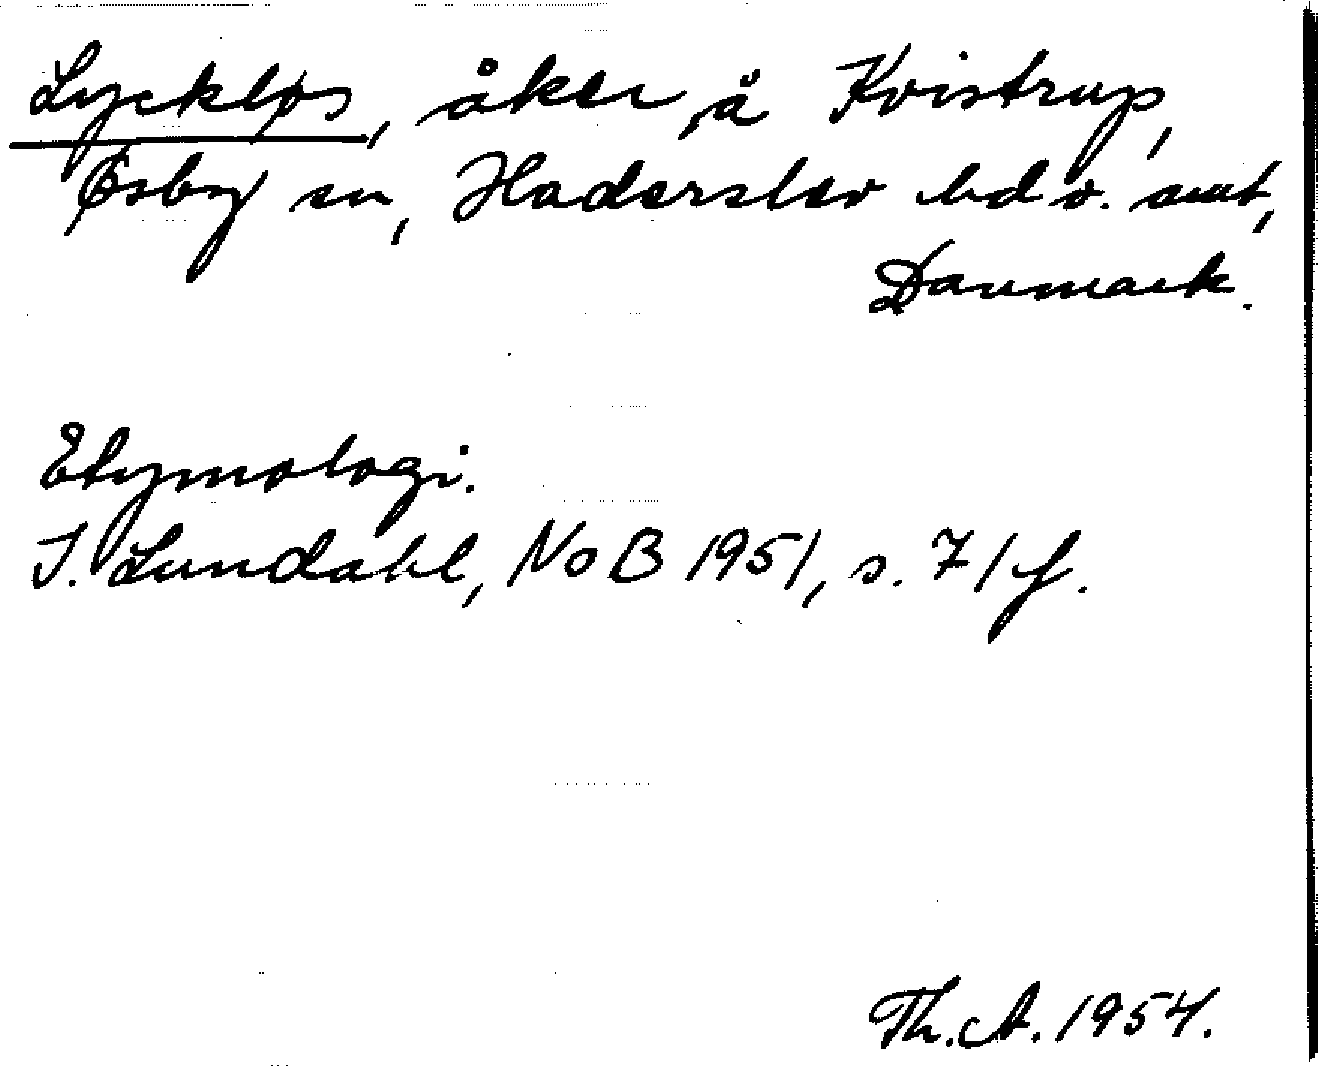 Lyckløs, åker, å Kvistrup,
Øsby sn, Haderslev hd o. amt,
Danmark.
Etymologi.
I. Lundahl, NoB 1951, s. 71 f.
Th. A. 1954.